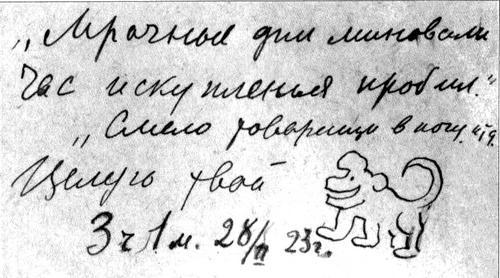 „Мрачные дни миновали
Час искупленья пробил."
„Смело товарищи в ногу" и т. д.
Целую твой
3 ч 1 м. 28/II 23 г.